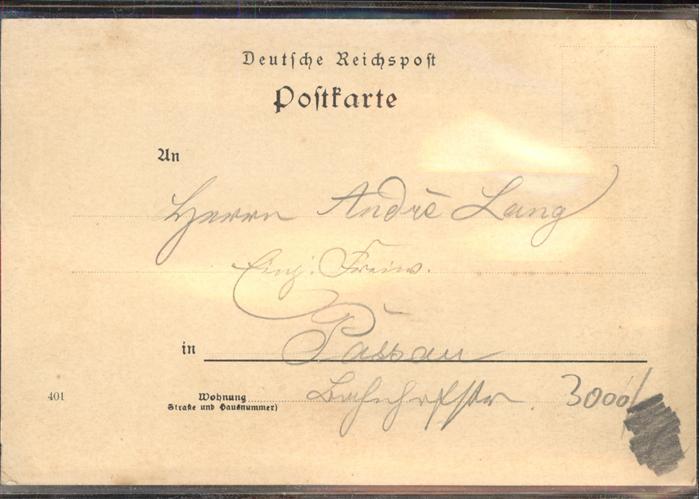 Deutsche Reichspost
Postkarte
An
Herrn André Lang
Einj: Freiw.
in Passau
401
Wohnung Bahnhofstr. 3000/
Straße und Hausnummer)